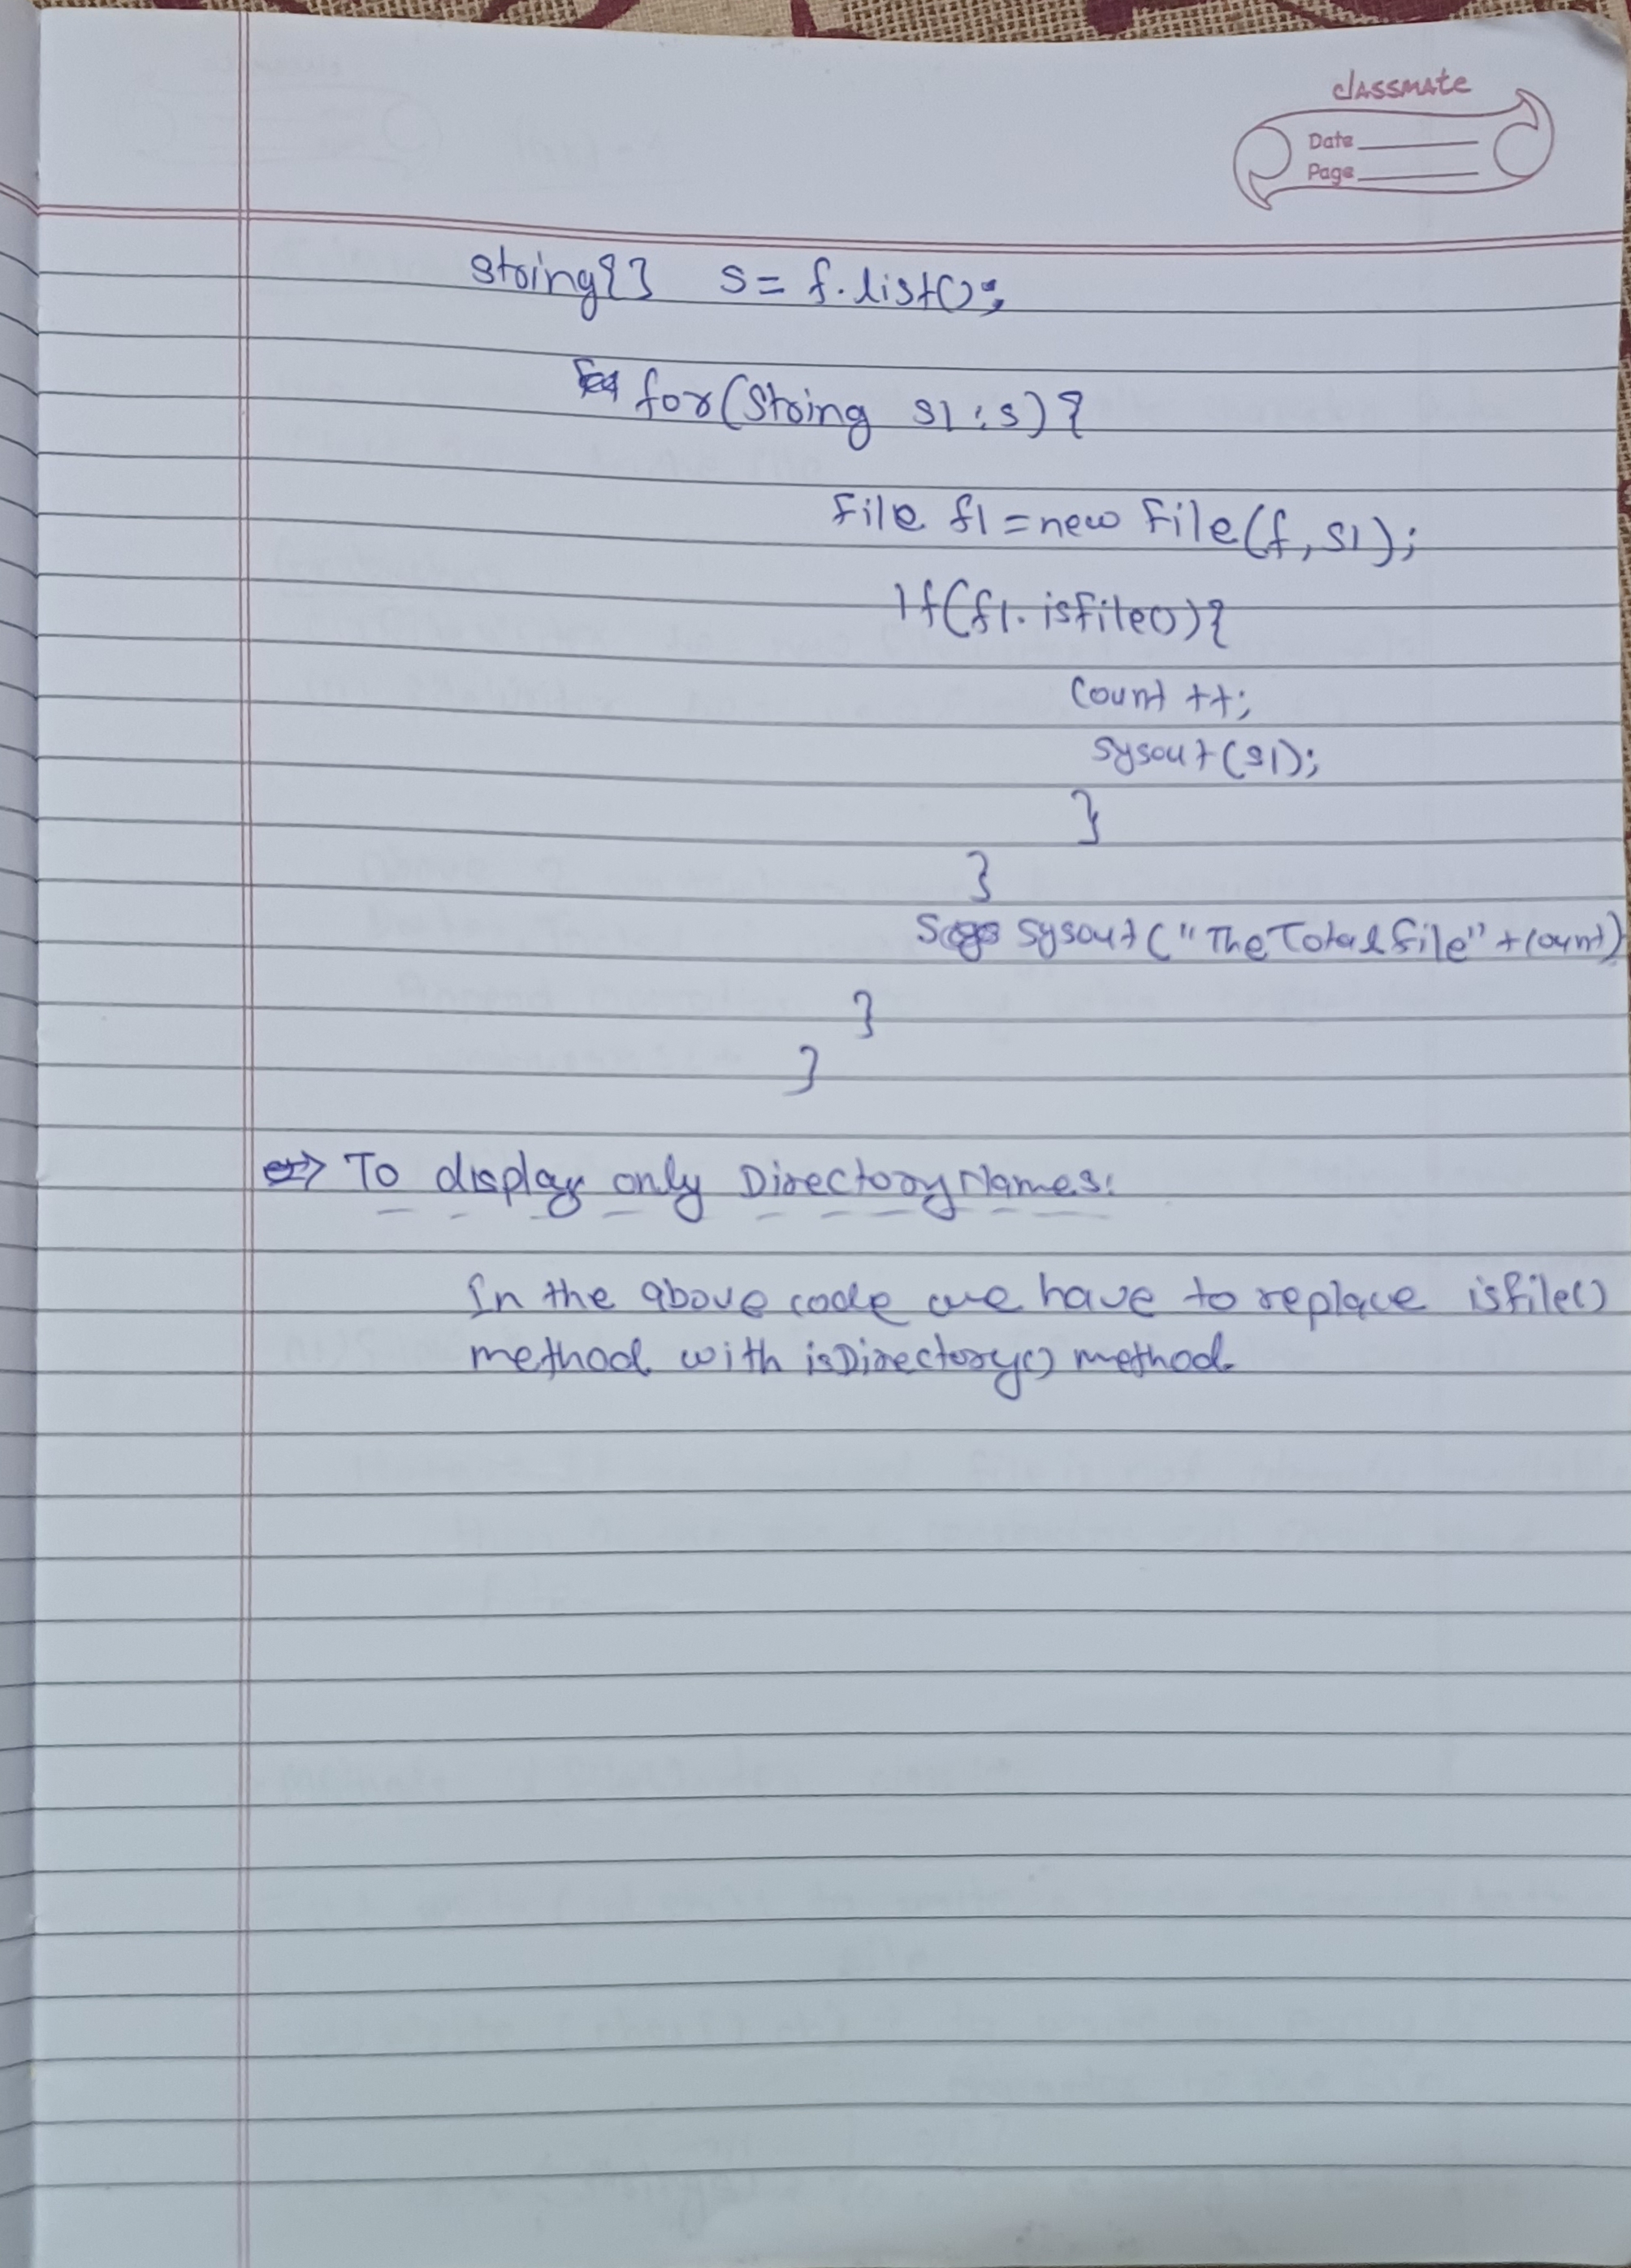 classmate
Date
Page
String{} s = f.list();
for(String s1 : s) {
File f1 = new File(f, s1);
If(f1.isfile()) {
Count ++;
Sysout(s1);
}
}
Sysout("The Total file" + count)
}
}
=> To display only Directory Names:
In the above code we have to replace isfile()
method with isDirectory() method.